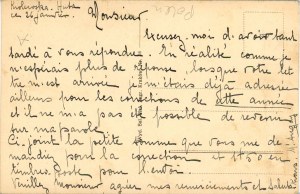 ce 26 janvier.
Monsieur
Excusez-moi d'avoir tant
tardé à vous répondre. En réalité comme je
n'espérais plus de réponse, lorsque votre let
tre m'est arrivée je m'étais déjà adressée
ailleurs pour les corrections de cette année
et il ne m'a pas été possible de revenir
sur ma parole.
Ci-joint la petite somme que vous me de-
mandiez pour la correction et 1f50 en
timbres-poste pour l'envoi.
Veuillez Monsieur agréer mes remerciements et